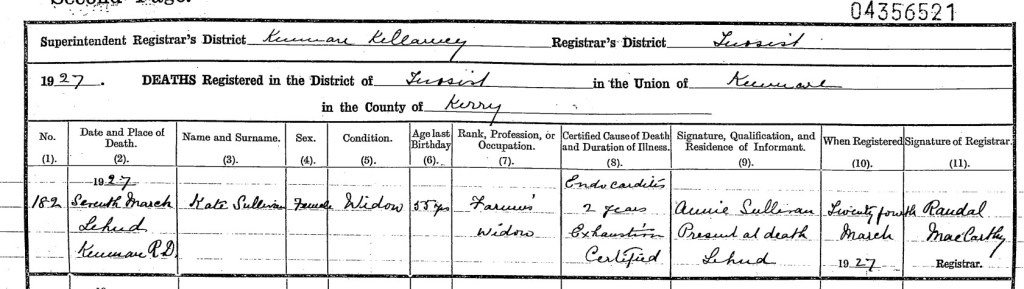 Second Page.
04356521
Superintendent Registrar's District Kenmare Killarney Registrar's District Tuosist
1927. DEATHS Registered in the District of Tuosist in the Union of Kenmare
in the County of Kerry
No. Date and Place of Death. Name and Surname. Sex. Condition. Age last Birthday Rank, Profession, or Occupation. Certified Cause of Death and Duration of Illness. Signature, Qualification, and Residence of Informant. When Registered Signature of Registrar.
(1). (2). (3). (4). (5). (6). (7). (8). (9). (10). (11).
1927 Endocarditis
182 Seventh March Kate Sullivan Female Widow 55 yrs Farmer's 2 years Annie Sullivan Twenty fourth Randal
Lehud Widow Exhaustion Present at death March MacCarthy
Kenmare R.D. Certified Lehud 1927 Registrar.